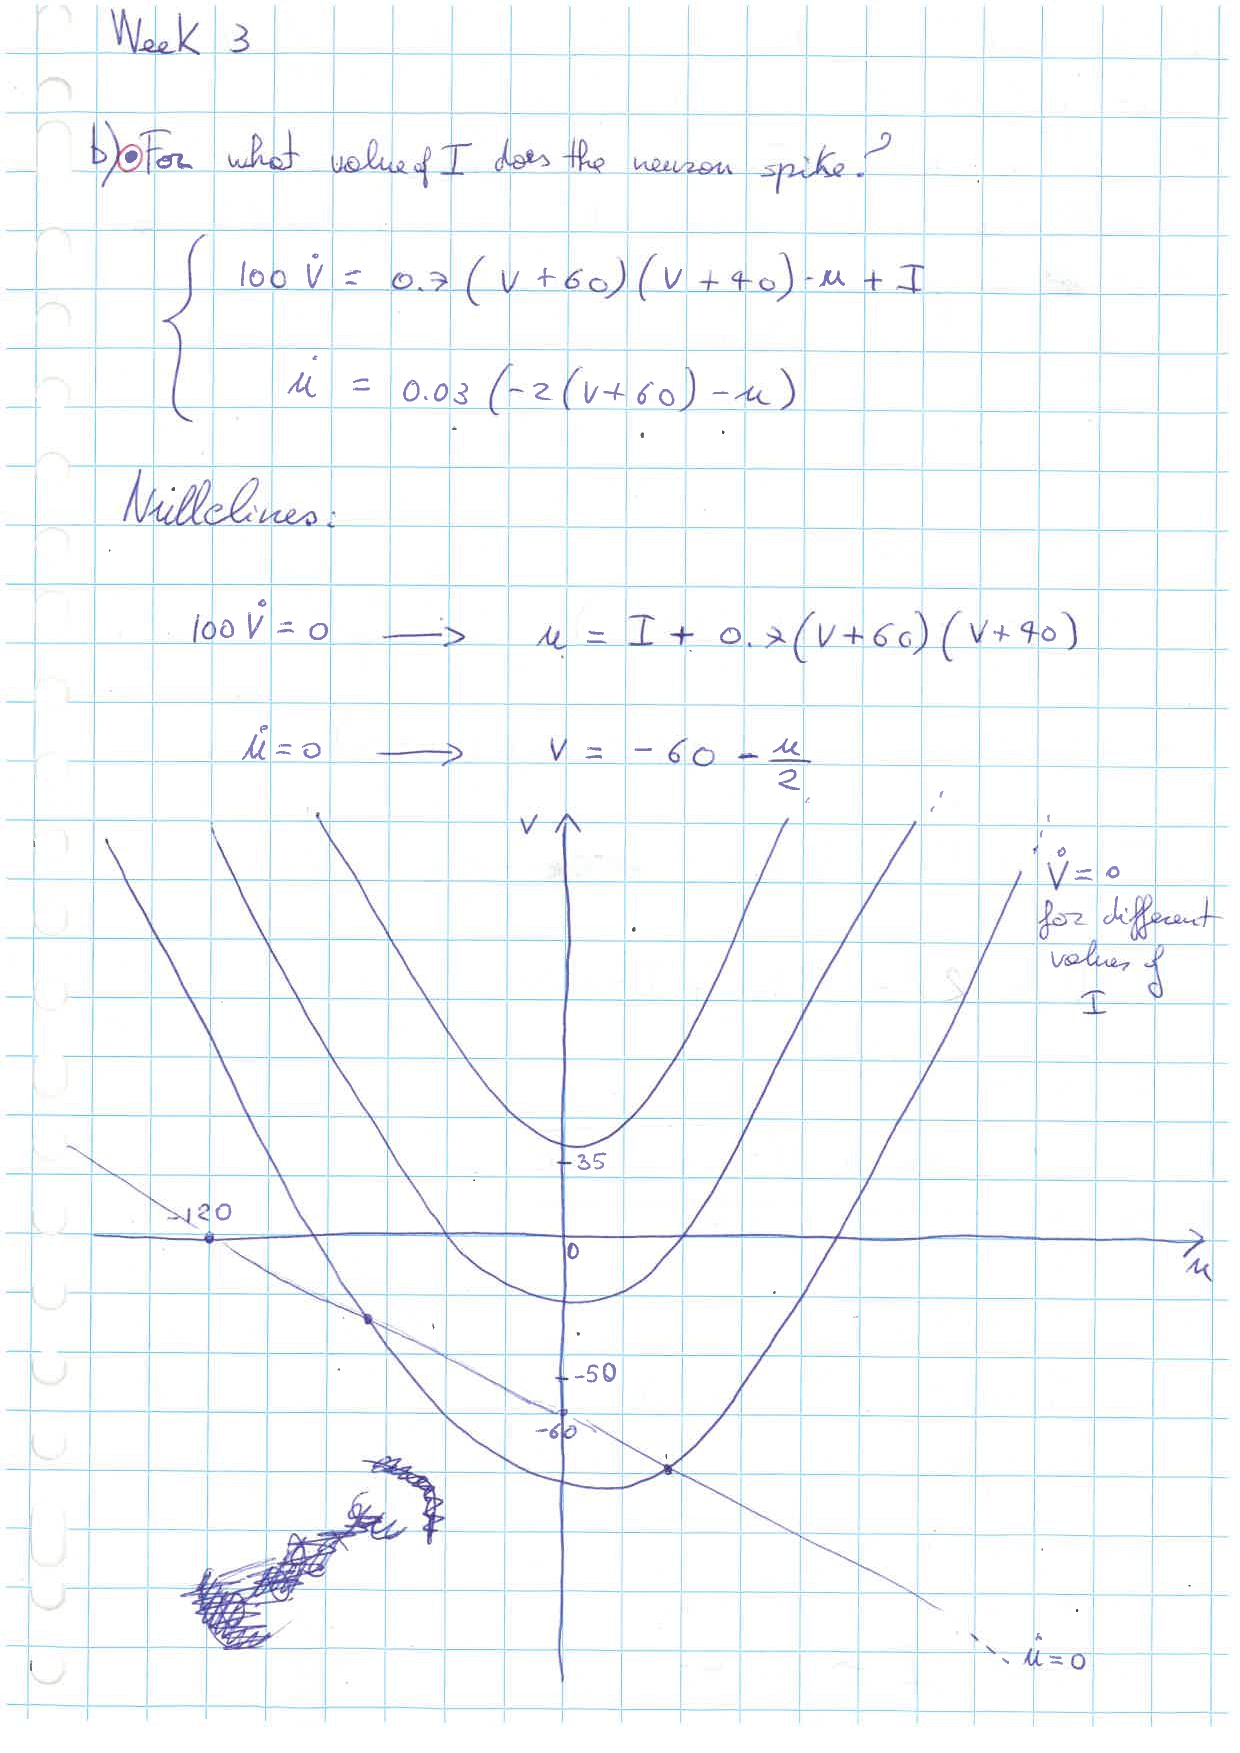 Week 3
b) For what value of I does the neuron spike?
100 V̇ = 0.7 (V+60)(V+40) - u + I
u̇ = 0.03 (-2(V+60) - u)
Nullclines:
100 V̇ = 0 → u = I + 0.7 (V+60)(V+40)
u̇ = 0 → V = -60 - u/2
V
V̇ = 0
for different
values of
I
35
-120
0
u
-50
-60
u̇ = 0